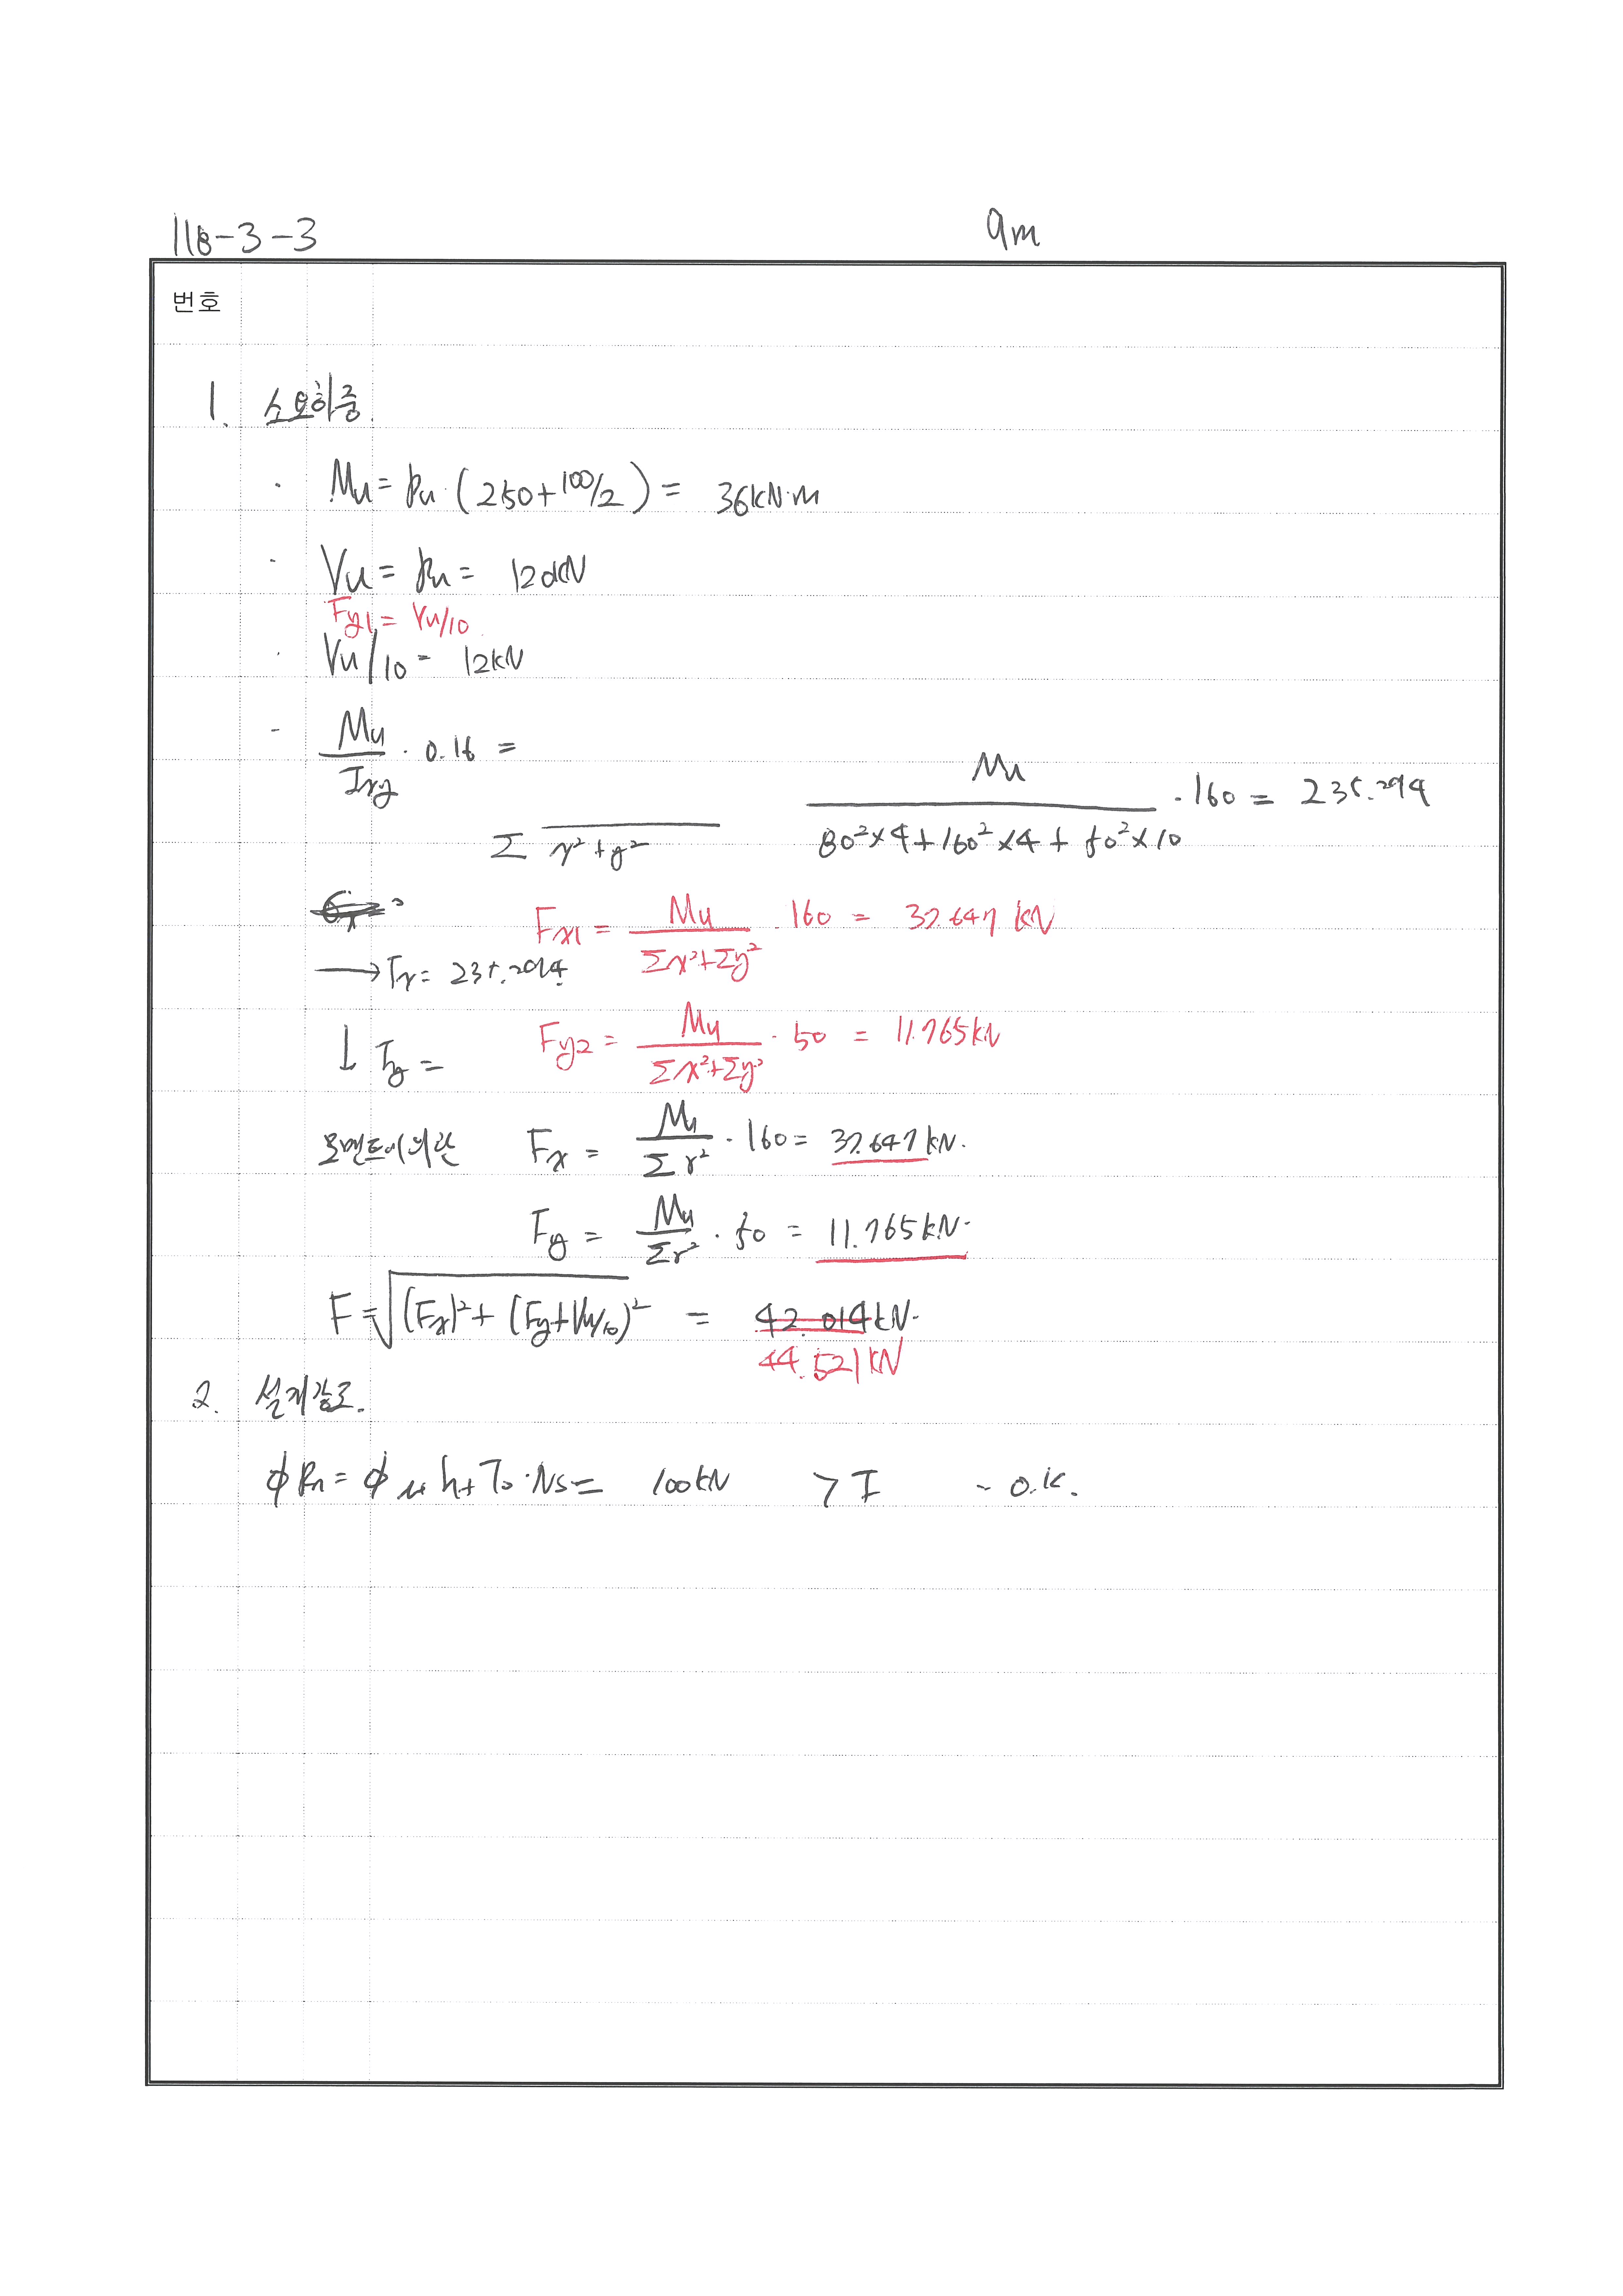 118-3-3 9m
번호
1. 소요하중.
· Mu = Pu · (250+100/2) = 36kN·m
· Vu = Pu = 120kN
Fy1 = Vu/10
· Vu/10 = 12kN
- Mu/Ixy · 0.16 =
Σ x²+y² Mu/(80²×4+160²×4+50²×10) · 160 = 235.294
Fx1 = Mu/(Σx²+Σy²) · 160 = 37.647 kN
→ Tx = 235.294
↓ Ty = Fy2 = Mu/(Σx²+Σy²) · 50 = 11.765kN
모멘트에 의한 Fx = Mu/Σr² · 160 = 37.647kN.
Fy = Mu/Σr² · 50 = 11.765kN.
F = √((Fx)²+(Fy+Vu/10)²) = 42.014kN.
44.521kN
2. 설계강도.
φRn = φ μ hf To · Ns = 100kN > F - O.K.